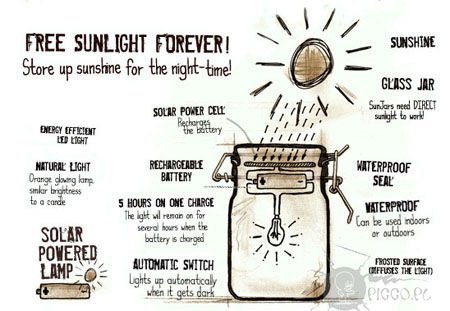 FREE SUNLIGHT FOREVER!
Store up sunshine for the night-time!
SUNSHINE
GLASS JAR
SunJars need DIRECT
sunlight to work!
SOLAR POWER CELL
Recharges
the battery
ENERGY EFFICIENT
LED LIGHT
NATURAL LIGHT
Orange glowing lamp,
similar brightness
to a candle
RECHARGEABLE
BATTERY
WATERPROOF
SEAL
5 HOURS ON ONE CHARGE
The light will remain on for
several hours when the
battery is charged
WATERPROOF
Can be used indoors
or outdoors
SOLAR
POWERED
LAMP
AUTOMATIC SWITCH
Lights up automatically
when it gets dark
FROSTED SURFACE
(DIFFUSES THE LIGHT)
PIGGO.PL